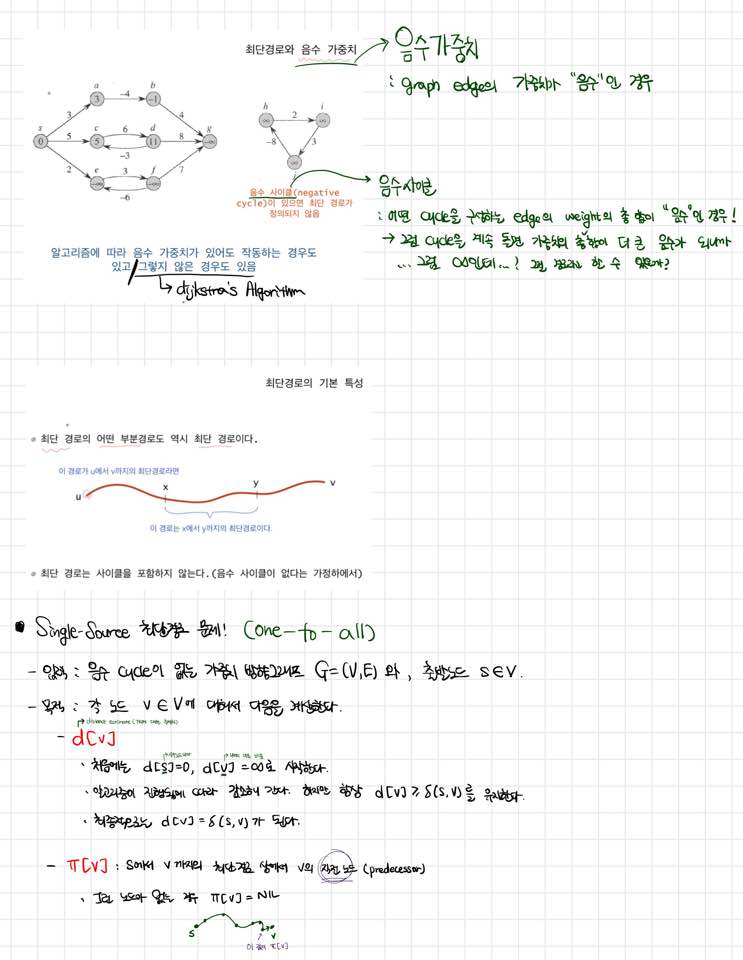 최단경로와 음수 가중치
음수가중치
: graph edge의 가중치가 "음수"인 경우
a
b
3
-4
-1
3
4
s
c
d
g
0
5
5
6
11
8
-∞
-3
2
e
3
f
7
-∞
-∞
-6
h
i
∞
2
∞
-8
3
∞
음수 사이클(negative
cycle)이 있으면 최단 경로가
정의되지 않음
음수사이클
: 어떤 cycle을 구성하는 edge의 weight의 총 합이 "음수"인 경우!
→ 그럼 cycle을 계속 돌면 가중치의 총합이 더 큰 음수가 되니까
... 그럼 ∞인데...? 그럼 경로라 할 수 있을까?
알고리즘에 따라 음수 가중치가 있어도 작동하는 경우도
있고 그렇지 않은 경우도 있음
↳ dijkstra's Algorithm
최단경로의 기본 특성
최단 경로의 어떤 부분경로도 역시 최단 경로이다.
이 경로가 u에서 v까지의 최단경로라면
u
x
y
v
이 경로는 x에서 y까지의 최단경로이다.
최단 경로는 사이클을 포함하지 않는다.(음수 사이클이 없다는 가정하에서)
• Single-Source 최단경로 문제! (one-to-all)
- 입력 : 음수 cycle이 없는 가중치 방향그래프 G=(V,E) 와, 출발노드 s∈V.
- 목적 : 각 노드 v∈V에 대해서 다음을 계산한다.
distance estimate
- d[v]
· 처음에는 d[s]=0, d[v]=∞로 시작한다.
· 알고리즘이 진행됨에 따라 감소해 간다. 하지만 항상 d[v] ≥ δ(s,v)를 유지한다.
· 최종적으로는 d[v] = δ(s,v)가 된다.
- π[v] : s에서 v까지의 최단경로 상에서 v의 직전 노드 (predecessor)
· 그런 노드가 없는 경우 π[v] = NIL
s
v
이 π[v]